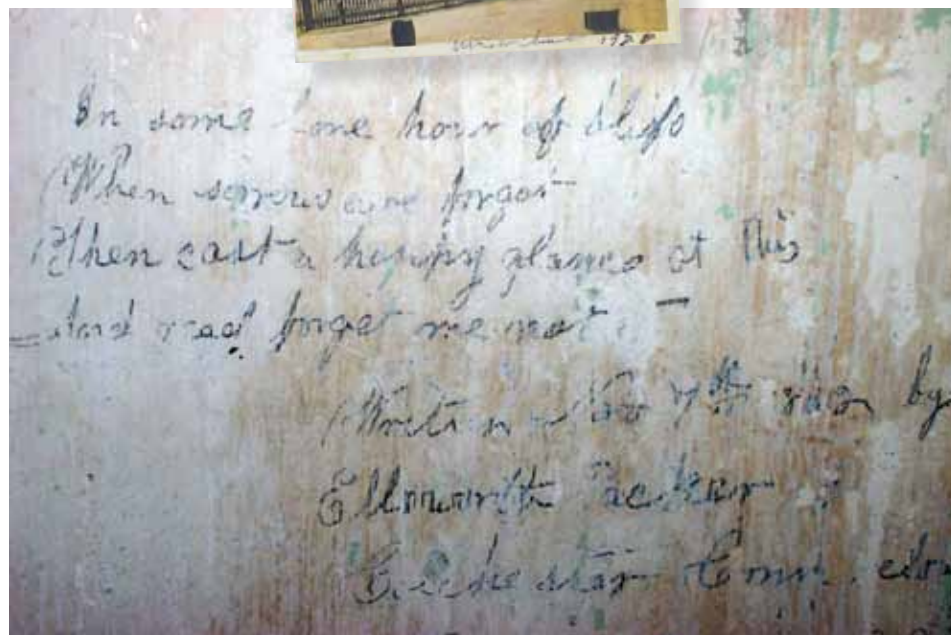 1928
In some lone hour of bliss
When sorrows are forgot
Then cast a happy glance at this
And read forget me not. –
Written Nov 7th by
Ellsworth Packer
Conn.